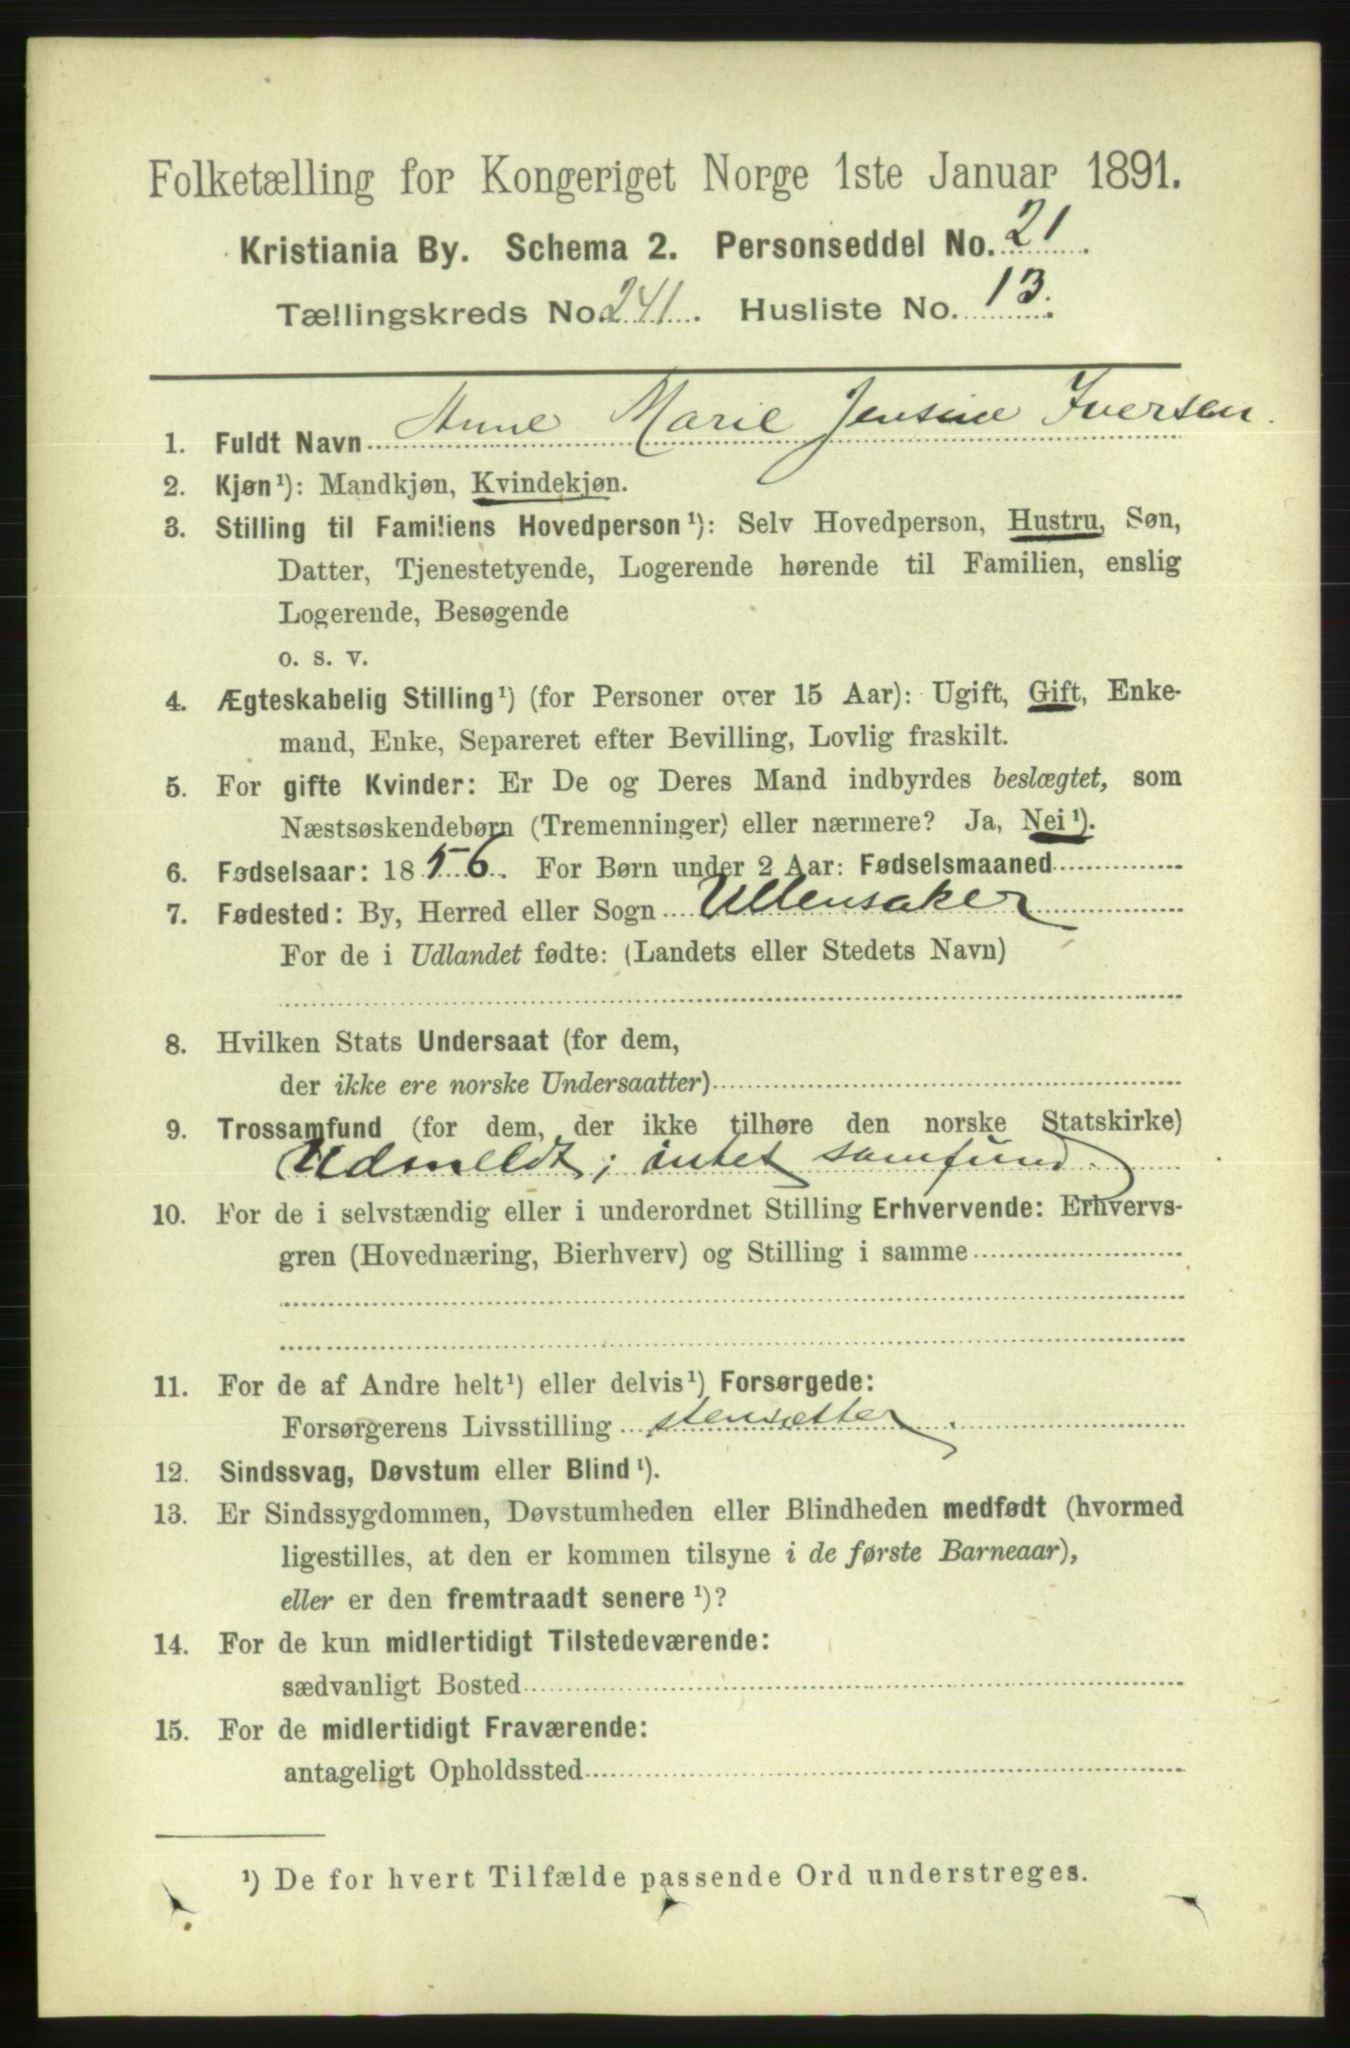 Folketælling for Kongeriget Norge 1ste Januar 1891.
Kristiania By. Schema 2. Personseddel No. 21.
Tællingskreds No. 241. Husliste No. 13.
1. Fuldt Navn Anne Marie Jensine Iversen.
2. Kjøn¹): Mandkjøn, Kvindekjøn.
3. Stilling til Familiens Hovedperson¹): Selv Hovedperson, Hustru, Søn,
Datter, Tjenestetyende, Logerende hørende til Familien, enslig
Logerende, Besøgende
o. s. v.
4. Ægteskabelig Stilling¹) (for Personer over 15 Aar): Ugift, Gift, Enke-
mand, Enke, Separeret efter Bevilling, Lovlig fraskilt.
5. For gifte Kvinder: Er De og Deres Mand indbyrdes beslægtet, som
Næstsøskendebørn (Tremenninger) eller nærmere? Ja, Nei¹).
6. Fødselsaar: 1856. For Børn under 2 Aar: Fødselsmaaned
7. Fødested: By, Herred eller Sogn Ullensaker
For de i Udlandet fødte: (Landets eller Stedets Navn)
8. Hvilken Stats Undersaat (for dem,
der ikke ere norske Undersaatter)
9. Trossamfund (for dem, der ikke tilhøre den norske Statskirke)
Udmeldt; intet samfund.
10. For de i selvstændig eller i underordnet Stilling Erhvervende: Erhvervs-
gren (Hovednæring, Bierhverv) og Stilling i samme
11. For de af Andre helt¹) eller delvis¹) Forsørgede:
Forsørgerens Livsstilling stensætter.
12. Sindssvag, Døvstum eller Blind¹).
13. Er Sindssygdommen, Døvstumheden eller Blindheden medfødt (hvormed
ligestilles, at den er kommen tilsyne i de første Barneaar),
eller er den fremtraadt senere¹)?
14. For de kun midlertidigt Tilstedeværende:
sædvanligt Bosted
15. For de midlertidigt Fraværende:
antageligt Opholdssted
¹) De for hvert Tilfælde passende Ord understreges.